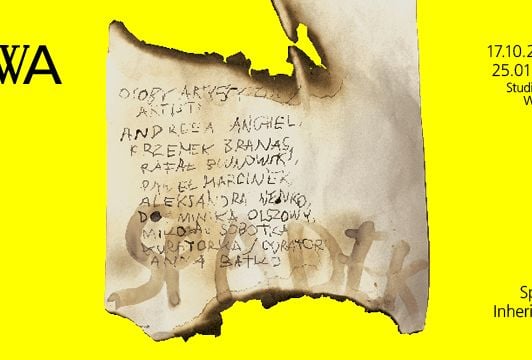 WA
17.10.2
25.01
Studi
W
OSOBY ARTYSTYCZNE
ARTISTS
ANDREEA ANGHEL,
KRZEMEK BRANAS,
RAFAŁ
PAWEŁ MARCINEK
ALEKSANDRA
DOMINIKA OLSZOWY,
MIKOŁAJ SOBOTKA
KURATORKA / CURATOR
ANNA BATKO
SPADEK
Sp
Inheri